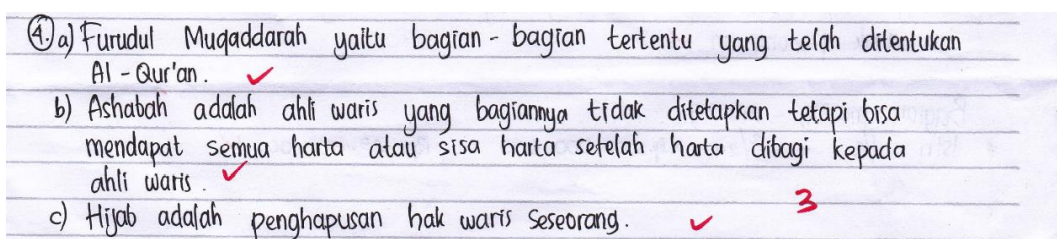 4. a) Furudul Muqaddarah yaitu bagian - bagian tertentu yang telah ditentukan
Al - Qur'an.
b) Ashabah adalah ahli waris yang bagiannya tidak ditetapkan tetapi bisa
mendapat semua harta atau sisa harta setelah harta dibagi kepada
ahli waris.
3
c) Hijab adalah penghapusan hak waris seseorang.